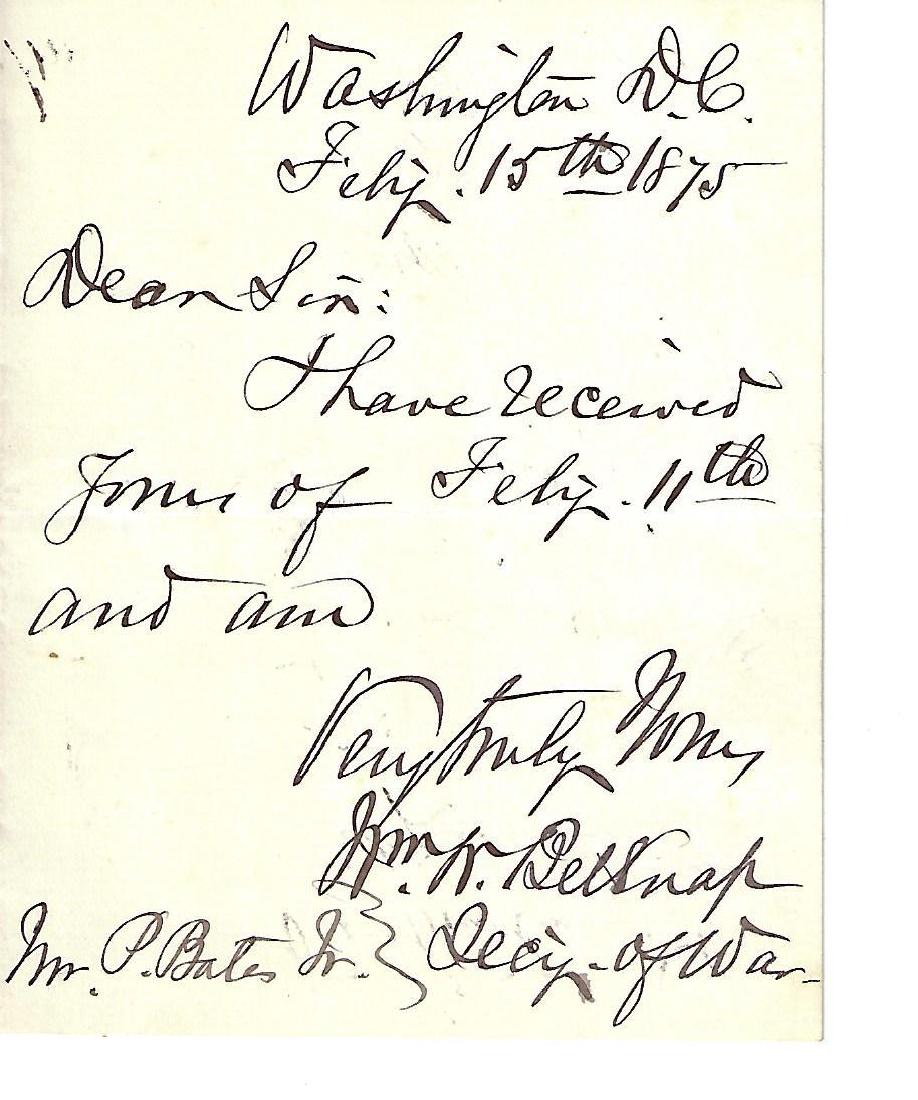 Washington D.C.
Feby. 15th 1875
Dear Sir:
I have received
Yours of Feby. 11th
and am
Very truly Yours
Wm. W. Belknap
Mr. P. Bates Jr. } Secy. of War